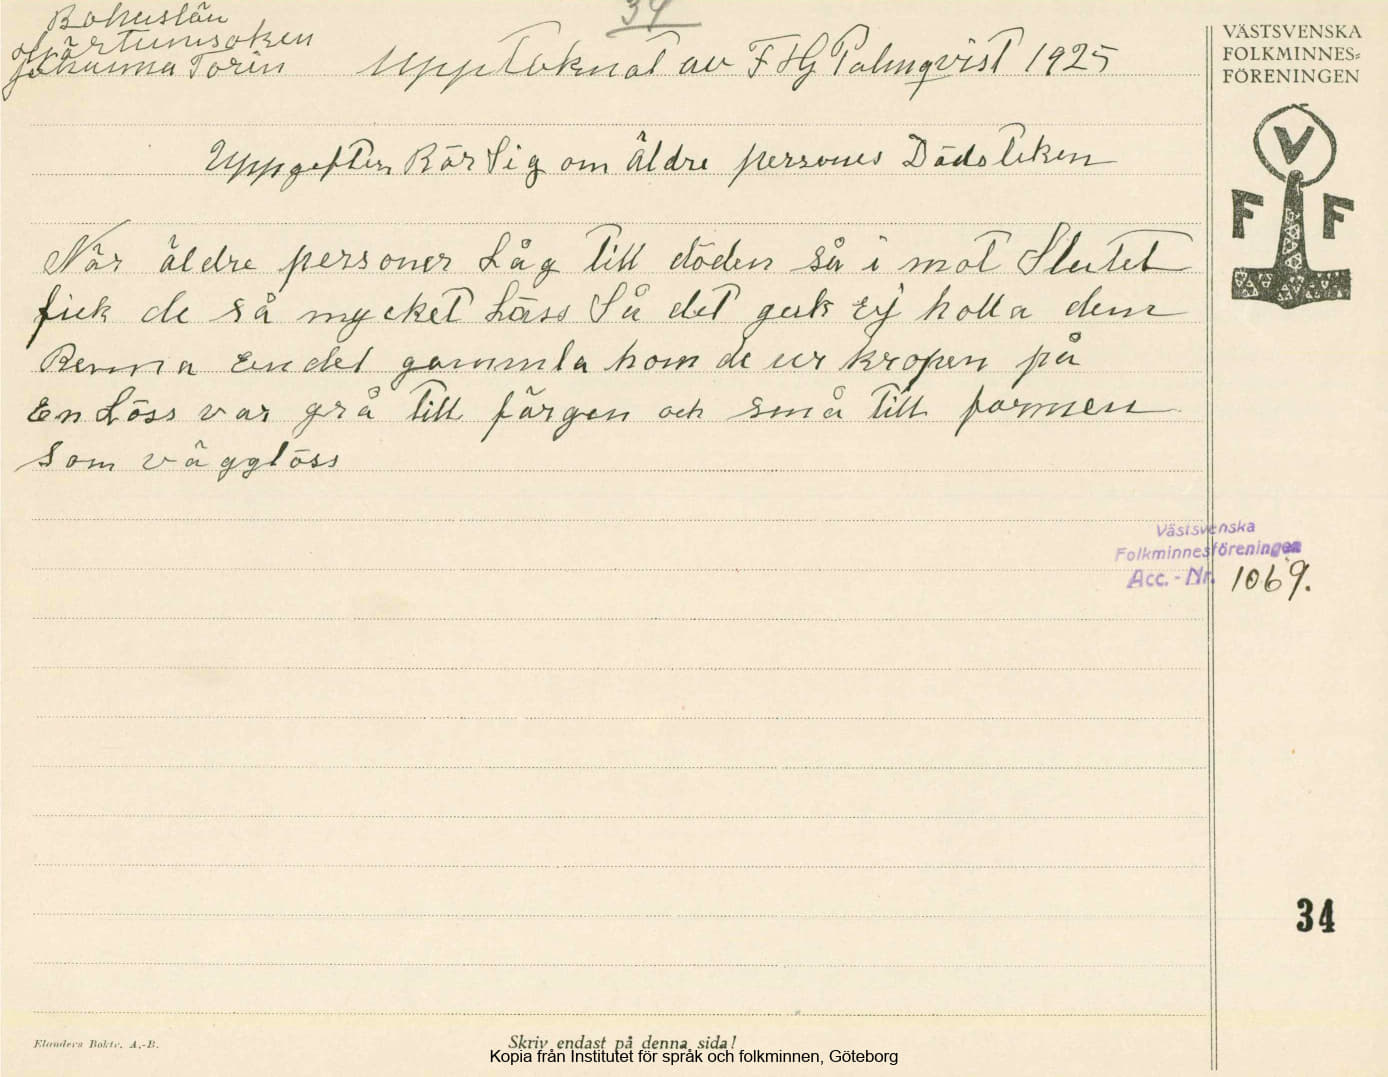 34
Bohuslän
Hjärtumsoken
Johanna Torin
Uppteknat av F HG Palmqvist 1925
VÄSTSVENSKA
FOLKMINNES=
FÖRENINGEN
V
F F
Uppgeften Rör Sig om äldre persones Dödsteken
När äldre personer Låg till döden så i mot Slutet
fick de så mycket Löss Så det geck Ej holla dem
Renna Endel gammla kom de ur kropen på
En Löss var grå till färgen och små till formen
som vägglöss
Västsvenska
Folkminnesföreningen
Acc. - Nr. 1069.
34
Elanders Boktr. A.-B.
Skriv endast på denna sida!
Kopia från Institutet för språk och folkminnen, Göteborg